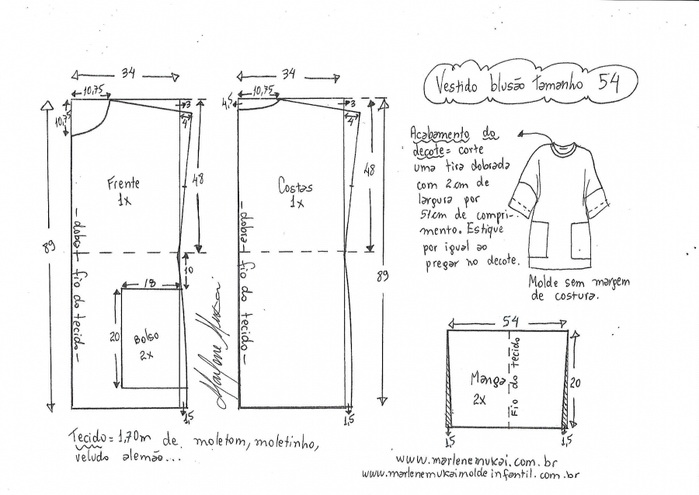 Vestido blusão tamanho 54
34
34
10,75
10,75
10,75
4,5
3
3
4
4
Acabamento do
decote = corte
uma tira dobrada
com 2cm de
largura por
51cm de compri-
mento. Estique
por igual ao
pregar no decote.
Frente
1x
48
Costas
1x
48
89
89
- dobra - fio do tecido -
- dobra - fio do tecido -
10
18
20
Bolso
2x
Marlene Mukai
1,5
1,5
Molde sem margem
de costura.
54
Manga
2x
Fio do tecido
20
1,5
1,5
Tecido = 1,70m de moletom, moletinho,
veludo alemão...
www.marlenemukai.com.br
www.marlenemukaimoldeinfantil.com.br